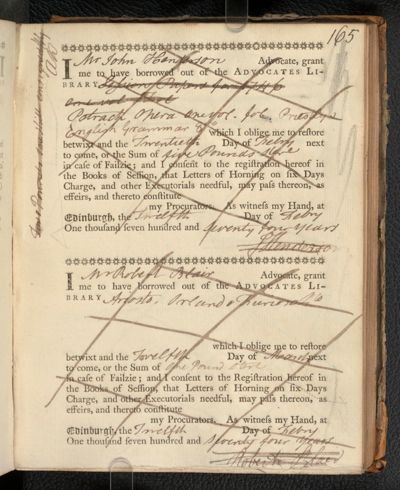 165
I Mr John Henderson Advocate, grant
me to have borrowed out of the ADVOCATES LI-
BRARY
one vol
Petrach Opera one vol. fol. Priestly's
English Grammar which I oblige me to restore
betwixt and the Twentieth Day of Febry next
to come, or the Sum of five Pounds
in case of Failzie; and I consent to the registration hereof in
the Books of Session, that Letters of Horning on six Days
Charge, and other Executorials needful, may pass thereon, as
effeirs, and thereto constitute
my Procurators. As witness my Hand, at
Edinburgh, the Twelfth Day of Febry
One thousand seven hundred and seventy four years
J Henderson
I Mr Robert Blair Advocate, grant
me to have borrowed out of the ADVOCATES LI-
BRARY Ariosto Orlando Furioso
which I oblige me to restore
betwixt and the Twelfth Day of March next
to come, or the Sum of one Pound Ster
in case of Failzie; and I consent to the Registration hereof in
the Books of Session, that Letters of Horning on six Days
Charge, and other Executorials needful, may pass thereon, as
effeirs, and thereto constitute
my Procurators. As witness my Hand, at
Edinburgh, the Twelfth Day of Febry
One thousand seven hundred and seventy four years
Robert Blair